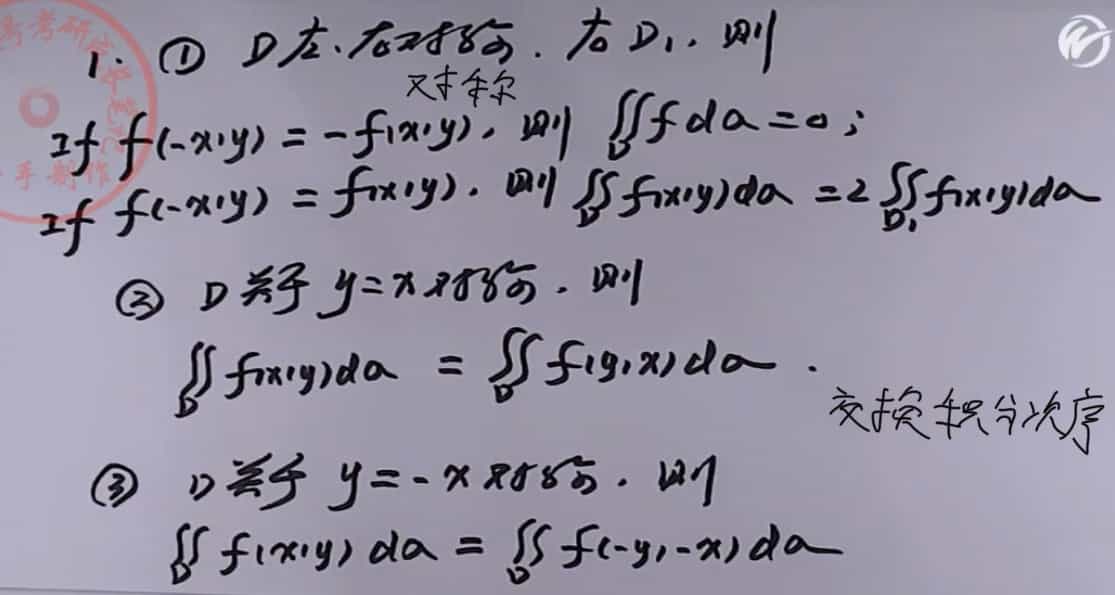 1. ① D左、右对称,右D₁,则
对称
If f(-x,y) = -f(x,y),则 ∬_D f dσ = 0;
If f(-x,y) = f(x,y),则 ∬_D f(x,y)dσ = 2∬_{D₁} f(x,y)dσ
② D关于 y=x对称,则
∬_D f(x,y)dσ = ∬_D f(y,x)dσ.
交换积分次序
③ D关于 y=-x对称,则
∬_D f(x,y)dσ = ∬_D f(-y,-x)dσ